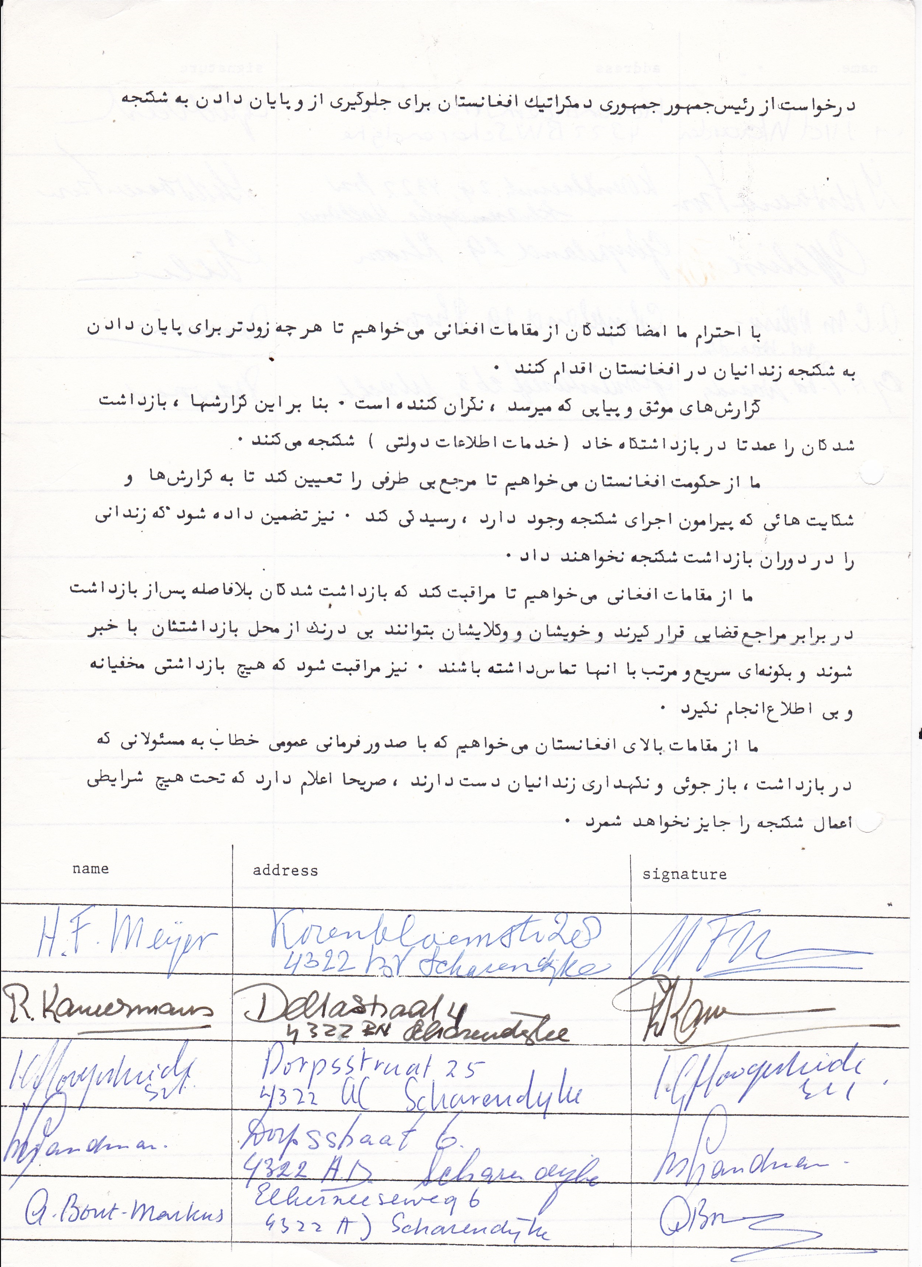 درخواست از رئیس‌جمهور جمهوری دمکراتیك افغانستان برای جلوگیری از و پایان دادن به شکنجه
با احترام ما امضا کنندگان از مقامات افغانی می‌خواهیم تا هر چه زودتر برای پایان دادن
به شکنجه زندانیان در افغانستان اقدام کنند ٠
گزارش‌های موثق و پیاپی که میرسد ، نگران کننده است ٠ بنا بر این گزارشها ، بازداشت
شدگان را عمدتا در بازداشتگاه خاد ( خدمات اطلاعات دولتی ) شکنجه می‌کنند ٠
ما از حکومت افغانستان می‌خواهیم تا مرجع بی طرفی را تعیین کند تا به گزارش‌ها و
شکایت هائی که پیرامون اجرای شکنجه وجود دارد ، رسیدگی کند ٠ نیز تضمین داده شود که زندانی
را در دوران بازداشت شکنجه نخواهند داد ٠
ما از مقامات افغانی می‌خواهیم تا مراقبت کند که بازداشت شدگان بلافاصله پس‌از بازداشت
در برابر مراجع قضایی قرار گیرند و خویشان و وکلایشان بتوانند بی درنگ از محل بازداشتشان با خبر
شوند و بگونه‌ای سریع و مرتب با انها تماس‌داشته باشند ٠ نیز مراقبت شود که هیچ بازداشتی مخفیانه
و بی اطلاع انجام نگیرد ٠
ما از مقامات بالای افغانستان می‌خواهیم که با صدور فرمانی عمومی خطاب به مسئولانی که
در بازداشت ، بازجوئی و نگهداری زندانیان دست دارند ، صریحا اعلام دارد که تحت هیچ شرایطی
اعمال شکنجه را جایز نخواهد شمرد ٠
name address signature
H.F. Meijer Korenbloemstr 28
4322 Scharendijke
R. Kamermans Deltastraat 4
4322 BN Scharendijke
Dorpsstraat 25
4322 AC Scharendyke
Dorpsstraat 6.
4322 AD. Scharendijke
A. Bout-Markus Elkerzeeseweg 6
4322 Scharendijke